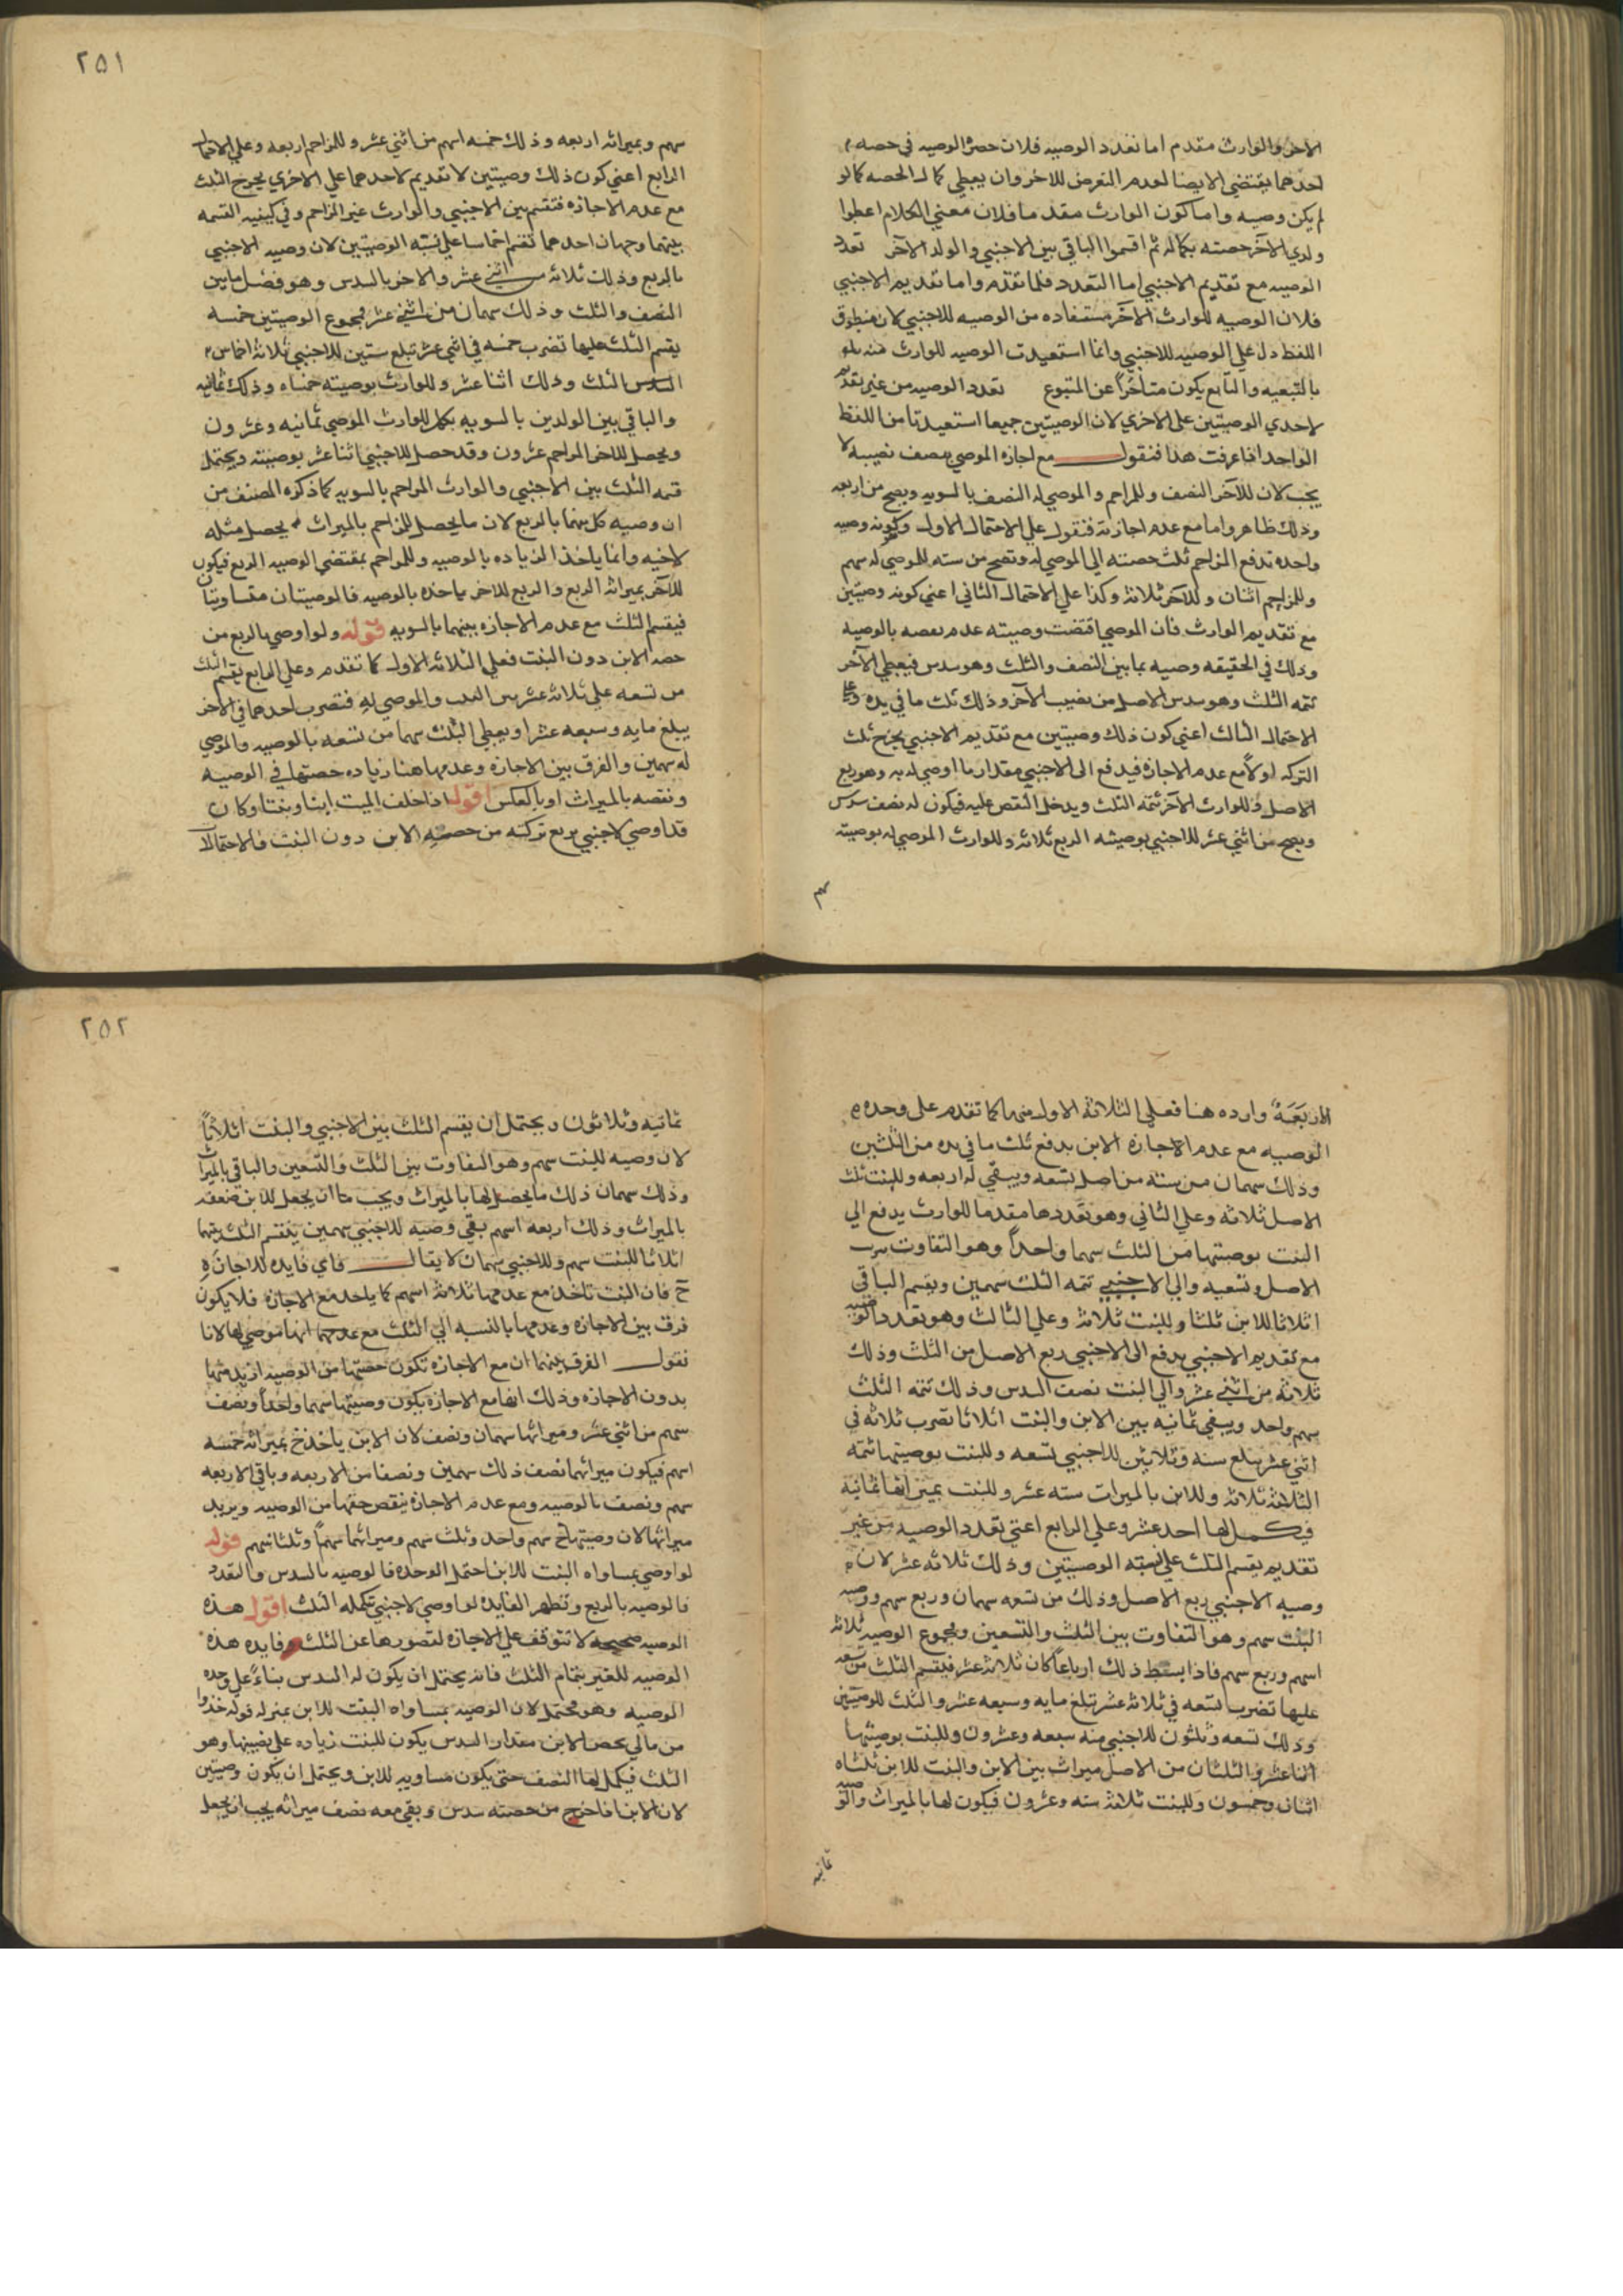 الاخر والوارث مقدم اما تعدد الوصيه فلان حصر الوصيه في حصه
احدهما يقتضي الايصا لعدم التعرض للاخر وان يعطي كمال الحصه كما لو
لم يكن وصيه واما كون الوارث مقدما فلان معني الكلام اعطوا
ولدي الآخر حصته بكماله ثم اقسموا الباقي بين الاجنبي والولد الآخر تعدد
الوصيه مع تقديم الاجنبي اما التعدد فلما تقدم واما تقديم الاجنبي
فلان الوصيه للوارث الآخر مستفاده من الوصيه للاجنبي لان منطوق
اللفظ دل علي الوصيه للاجنبي وانما استفيدت الوصيه للوارث
بالتبعيه والتابع يكون متأخرا عن المتبوع تعدد الوصيه من غير تقديم
لاحدي الوصيتين علي الاخري لان الوصيتين جميعا استفيدتا من اللفظ
الواحد اذا عرفت هذا فنقول مع اجازه الموصي بنصف نصيبه لا
يجب لان للآخر النصف وللمزاحم والموصي له النصف بالسويه ويصح من اربعه
وذلك ظاهر واما مع عدم اجازته فنقول علي الاحتمال الاول وكونه وصيه
واحده تدفع المزاحم ثلث حصته الي الموصي له وتصح من سته للموصي له سهم
وللمزاحم اثنان وللآخر ثلاثة وكذا علي الاحتمال الثاني اعني كونه وصيتين
مع تقديم الوارث فان الموصي اقتضت وصيته عدم نقصه بالوصيه
وذلك في الحقيقه وصيه بما بين النصف والثلث وهو سدس فيعطي الآخر
تتمه الثلث وهو سدس الاصل من نصيب الآخر وذلك ثلث ما في يده وعلي
الاحتمال الثالث اعني كون ذلك وصيتين مع تقديم الاجنبي يخرج ثلث
التركه اولا مع عدم الاجازه فيدفع الي الاجنبي مقدار ما اوصي له به وهو ربع
الاصل وللوارث الآخر تتمه الثلث ويدخل النقص عليه فيكون له نصف سدس
ويصح من اثني عشر للاجنبي بوصيته الربع ثلاثه وللوارث الموصي له بوصيته
سهم
٢٥١
سهم وبميراثه اربعه وذلك خمسه اسهم من اثني عشر وللمزاحم اربعه وعلي الاحتمال
الرابع اعني كون ذلك وصيتين لا تقديم لاحدهما علي الاخري يخرج الثلث
مع عدم الاجازه فتقسم بين الاجنبي والوارث غير المزاحم وفي كيفيه القسمه
بينهما وجهان احدهما تقسم اخماسا علي نسبه الوصيتين لان وصيه الاجنبي
بالربع وذلك ثلاثه من اثني عشر والاخر بالسدس وهو فضل ما بين
النصف والثلث وذلك سهمان من اثني عشر فمجموع الوصيتين خمسه
يقسم الثلث عليها تضرب خمسه في اثني عشر تبلغ ستين للاجنبي ثلاثة اخماس
الثلث وذلك اثنا عشر وللوارث بوصيته خمساه وذلك ثمانيه
والباقي بين الولدين بالسويه يكمل للوارث الموصي ثمانيه وعشرون
ويحصل للاخر المزاحم عشرون وقد حصل للاجنبي اثنا عشر بوصيته ويحتمل
قسمه الثلث بين الاجنبي والوارث المزاحم بالسويه كما ذكره المصنف من
ان وصيه كل منهما بالربع لان ما يحصل للمزاحم بالميراث يحصل مثله
لاخيه وانما ياخذ الزياده بالوصيه وللمزاحم بمقتضي الوصيه الربع فيكون
للآخر بميراثه الربع والربع للاخر ياخذه بالوصيه فالوصيتان متساويتان
فيقسم الثلث مع عدم الاجازه بينهما بالسويه قوله ولو اوصي بالربع من
حصه الابن دون البنت فعلي الثلاثه الاول كما تقدم وعلي الرابع يقسم الثلث
من تسعه علي ثلاثة عشر بين البنت والموصي له فتضرب احدهما في الآخر
يبلغ مايه وسبعه عشر او يعطي الثلث سهما من تسعه بالوصيه والموصي
له سهمين والفرق بين الاجازه وعدمها هنا زياده حصتها في الوصيه
ونقصه بالميراث او بالعكس اقول اذا خلف الميت ابنا وبنتا وكان
قد اوصي لاجنبي بربع تركته من حصه الابن دون البنت فالاحتمالات
الاربعة وارده هنا فعلي الثلاثة الاول منها كما تقدم علي وحده
الوصيه مع عدم الاجازه الابن يدفع ثلث ما في يده من الثلثين
وذلك سهمان من سته من اصل تسعه ويبقي له اربعه وللبنت ثلث
الاصل ثلاثه وعلي الثاني وهو تعددها مقدما للوارث يدفع الي
البنت بوصيتها من الثلث سهما واحدا وهو التفاوت بين
الاصل وتسعيه والي الاجنبي تتمه الثلث سهمين ويقسم الباقي
اثلاثا للابن ثلثا وللبنت ثلاثة وعلي الثالث وهو تعدد الوصيه
مع تقديم الاجنبي يدفع الي الاجنبي ربع الاصل من الثلث وذلك
ثلاثه من اثني عشر والي البنت نصف السدس وذلك تتمه الثلث
سهم واحد ويبقي ثمانيه بين الابن والبنت اثلاثا تضرب ثلاثه في
اثني عشر يبلغ سته وثلاثين للاجنبي تسعه وللبنت بوصيتها تتمه
الثلاثة ثلاثه وللابن بالميراث سته عشر وللبنت بميراثها ثمانيه
فيكمل لها احد عشر وعلي الرابع اعني تعدد الوصيه من غير
تقديم يقسم الثلث علي نسبه الوصيتين وذلك ثلاثه عشر لان
وصيه الاجنبي ربع الاصل وذلك من تسعه سهمان وربع سهم ووصيه
البنت سهم وهو التفاوت بين الثلث والتسعين ومجموع الوصيه ثلاثه
اسهم وربع سهم فاذا بسط ذلك ارباعا كان ثلاثة عشر فيقسم الثلث من تسعه
عليها تضرب تسعه في ثلاثة عشر تبلغ مايه وسبعه عشر والثلث للوصيتين
وذلك تسعه وثلثون للاجنبي منه سبعه وعشرون وللبنت بوصيتها
اثنا عشر والثلثان من الاصل ميراث بين الابن والبنت للابن ثلثاه
اثنان وخمسون وللبنت ثلاثه سته وعشرون فيكون لها بالميراث والوصيه
ثمانيه
٢٥٢
ثمانيه وثلاثون ويحتمل ان يقسم الثلث بين الاجنبي والبنت اثلاثا
لان وصيه للبنت سهم وهو التفاوت بين الثلث والتسعين والباقي بالميراث
وذلك سهمان ذلك ما يحصل لها بالميراث ويجب ان يجعل للابن ضعفه
بالميراث وذلك اربعه اسهم بقي وصيه للاجنبي سهمين يقسم الثلث بينهما
اثلاثا للبنت سهم وللاجنبي سهمان لا يقال فاي فايده للاجازه
ح فان البنت تاخذ مع عدمها ثلاثه اسهم كما ياخذ مع الاجازه فلا يكون
فرق بين الاجازه وعدمها بالنسبه الي الثلث مع عدمها انها موصي لها لانا
نقول الفرق بينهما ان مع الاجازه تكون حصتها من الوصيه ازيد منها
بدون الاجازه وذلك انها مع الاجازه يكون وصيتها سهما واحدا ونصف
سهم من اثني عشر وميراثها سهمان ونصف لان الابن ياخذ ح بميراثه خمسه
اسهم فيكون ميراثها نصف ذلك سهمين ونصفا من الاربعه وباقي الاربعه
سهم ونصف بالوصيه ومع عدم الاجازه ينقص حقها من الوصيه ويزيد
ميراثها لان وصيتها ح سهم واحد وثلث سهم وميراثها سهما وثلثا سهم قوله
لو اوصي بمساواه البنت للابن احتمل الوحده فالوصيه بالسدس والتعدد
فالوصيه بالربع وتظهر الفايده لو اوصي لاجنبي بتكمله الثلث اقول هذه
الوصيه صحيحه لا تتوقف علي الاجازه لقصورها عن الثلث وفايده هذه
الوصيه للغير بتمام الثلث فانه يحتمل ان يكون له السدس بناء علي وحده
الوصيه وهو محتمل لان الوصيه بمساواه البنت للابن بمنزله قوله خذوا
من مالي بحصه الابن مقدار السدس يكون للبنت زياده علي نصيبها وهو
الثلث فيكمل لها النصف حتي يكون مساويه للابن ويحتمل ان يكون وصيتين
لان الابن اذا خرج من حصته سدس وبقي معه نصف ميراثه يجب ان يجعل